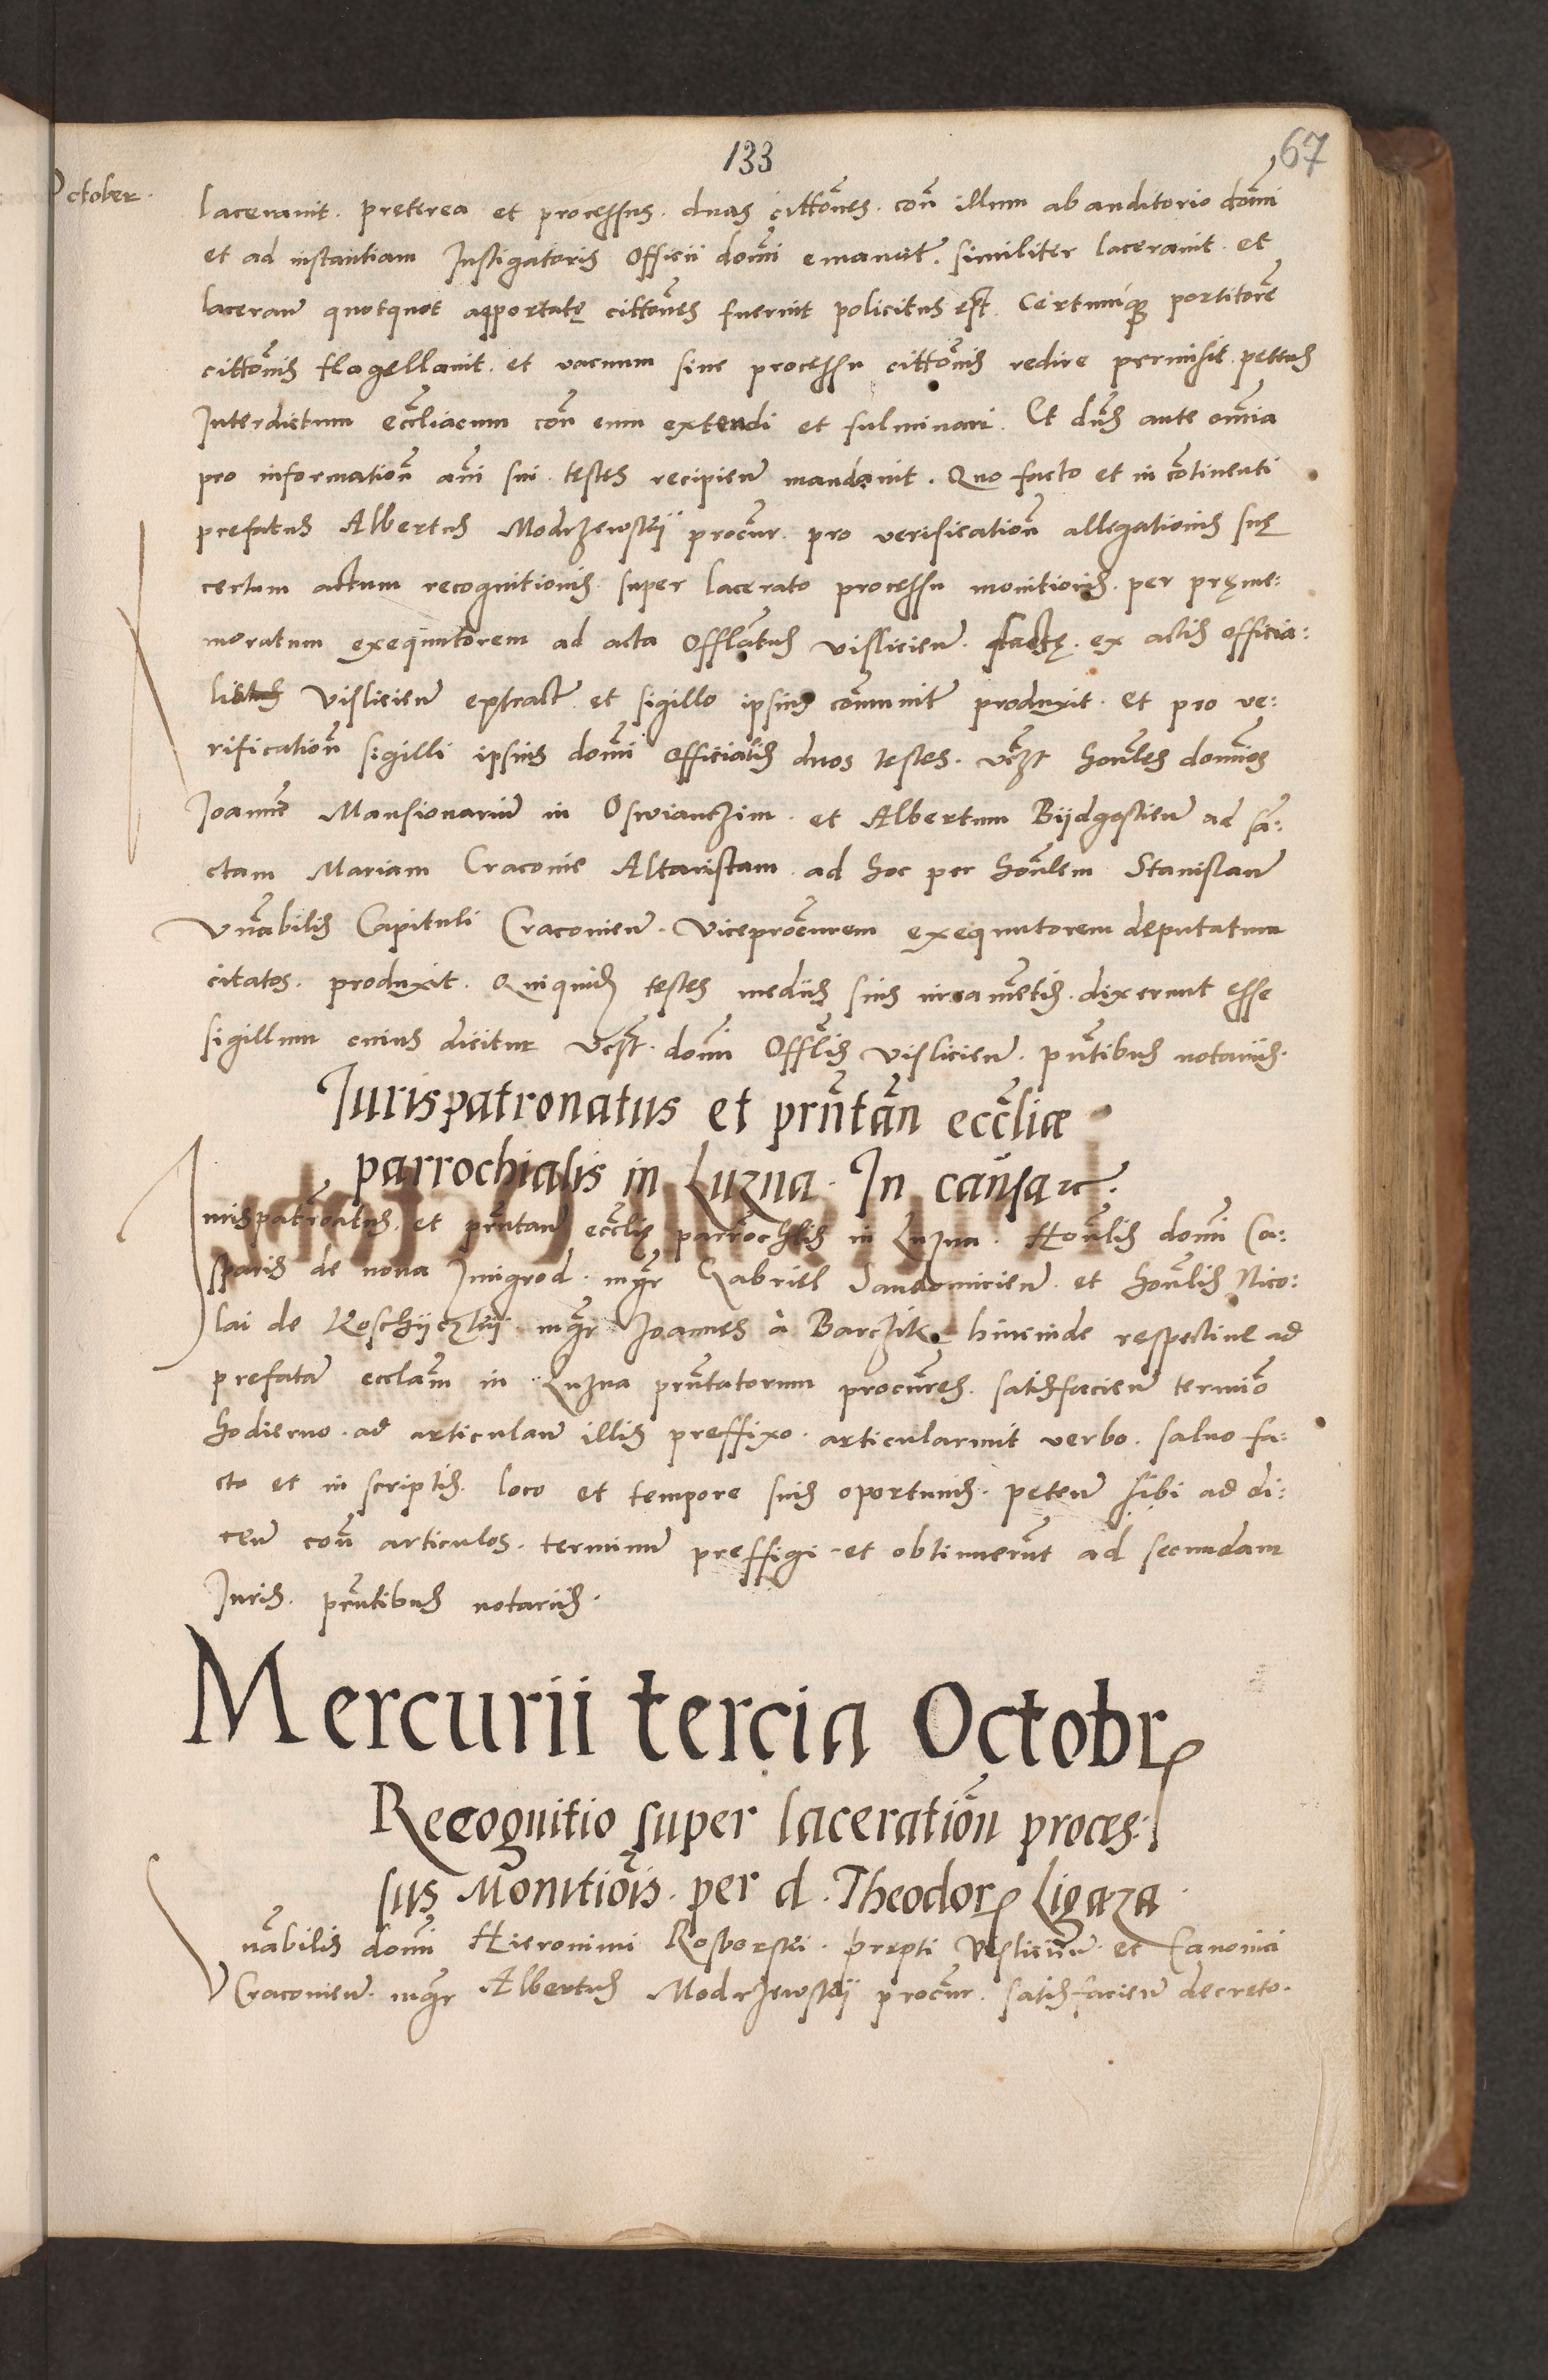 133
67
October.
laceravit. preterea et processus. duas citto͂nes. con͂ illum ab auditorio dom͂i
et ad instantiam Instigatoris Officii dom͂i emanat͂. similiter laceravit. et
laceran͂ quotquot apportatę citto͂nes fuerint policitus est. Certumq portitore͂
citto͂nis flagellavit. et vacuum sine processu citto͂nis redire permisit. petens
Interdictum eccl͂iacum con͂ eum extendi et fulminari. Et dn͂s ante om͂ia
pro informatio͂n a͂ni sui testes recipien͂ mandavit. Quo facto et in co͂tinenti
prefatus Albertus Modrzewskij procu͂r. pro verificatio͂n allegationis suę
certum actum recognitionis super lacerato processu monitionis. per pręme:
moratum exequutorem ad acta Offla͂tus vislicien͂. factę. ex actis officia:
lis vislicien͂ extract͂ et sigillo ipsius co͂munit͂ produxit. et pro ve:
rificatio͂n sigilli ipsius dom͂i Officialis duos testes. vcz͂t hon͂les dom͂ios
Joanne͂ Mansionariu͂ in Oswiantzim. et Albertum Bijdgostien͂ ad sa͂:
ctam Mariam Craconie Altaristam. ad hoc per hon͂lem Stanislau͂
Vn͂abilis Capituli Cracovien͂. Viceprocu͂rem exequutorem deputatum
citatos. produxit. Quiquid testes mediis suis iurame͂tis. dixerunt esse
sigillum cuius dicitur dom͂i Offlis vislicien͂. pn͂tibus notariis.
Iurispatronatus et prn͂ta͂n ecc͂liæ
parrochialis in Luzna. In causa etc.
Iurispatronatus. et prn͂tan͂ eccl͂ię parrochlis in Luzna. Hon͂lis dom͂i Ca:
sparis de nova Imigrod. mgr͂ Gabriel Sandomirien͂. et hon͂lis Nico:
lai de mgr͂ Joannes à Barczik. hincinde respective ad
prefata͂ eccla͂m in Luzna prn͂tatorum procu͂res. satisfacien͂ termi͂o
hodierno. ad articulan͂ illis preffixo. articularunt verbo. salvo fa:
cto et in scriptis. loco et tempore suis oportunis. peten͂ sibi ad di:
cen͂ con͂ articulos. terminu͂ preffigi. et obtinueru͂t ad secundam
Juris. prn͂tibus notariis.
Mercurii tercia Octobr
Recognitio super laceratio͂n proces:
sus Monitio͂is. per d. Theodor Ligaza
Vn͂abilis dom͂i Hieronimi Rosborski. prepti Vislicien͂. et Canonici
Cracovien͂. mgr͂ Albertus Modrzewskij procu͂r. satisfacien͂ decreto.